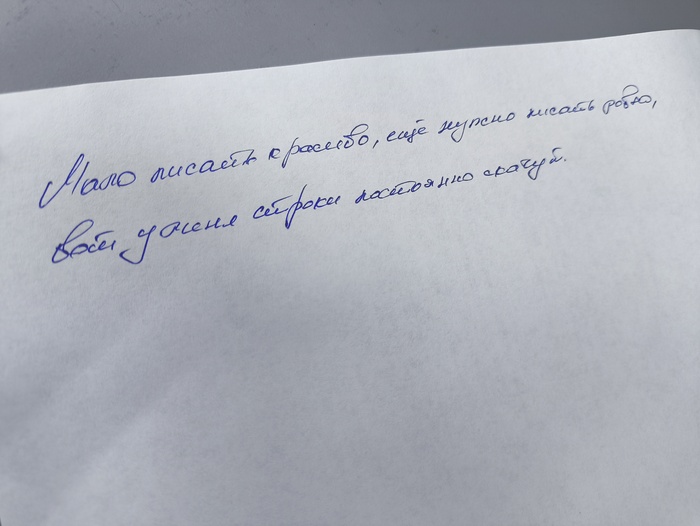 Мало писать красиво, ещё нужно писать ровно,
вот у меня строки постоянно скачут.